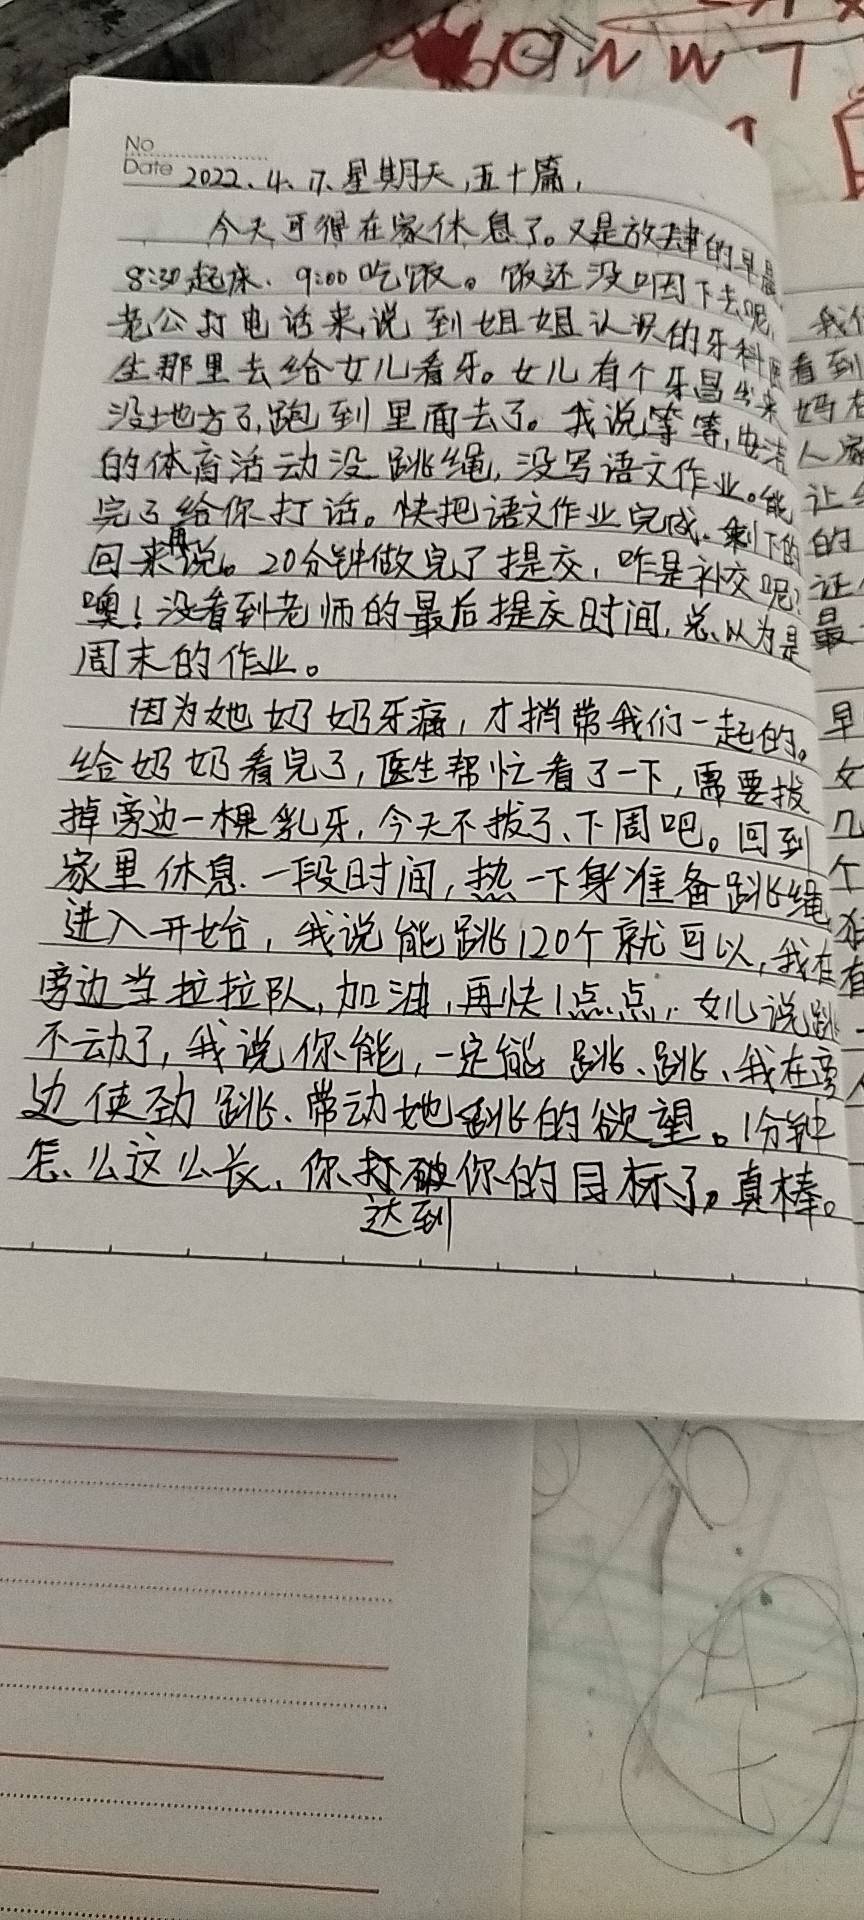 No
Date 2022.4.17.星期天,五十篇,
今天可得在家休息了。又是放肆的早晨
8:30起床、9:00吃饭。饭还没咽下去呢,
老公打电话来,说到姐姐认识的牙科医
生那里去给女儿看牙。女儿有个牙冒出来
没地方了,跑到里面去了。我说等等,
的体育活动没跳绳,没写语文作业。能
完了给你打话。快把语文作业完成、剩下的
回来再说。20分钟做完了提交,咋是补交呢?
噢!没看到老师的最后提交时间,总以为是
周末的作业。
因为她奶奶牙痛,才捎带我们一起的。
给奶奶看完了,医生帮忙看了一下,需要拔
掉旁边一棵乳牙,今天不拔了、下周吧。回到
家里休息.一段时间,热一下身准备跳绳
进入开始,我说能跳120个就可以,我在
旁边当拉拉队,加油,再快1点点,女儿说跳
不动了,我说你能,一定能 跳、跳、我在旁
边使劲跳、带动她跳的欲望。1分钟
怎么这么长、你打破你的目标了。真棒。
达到